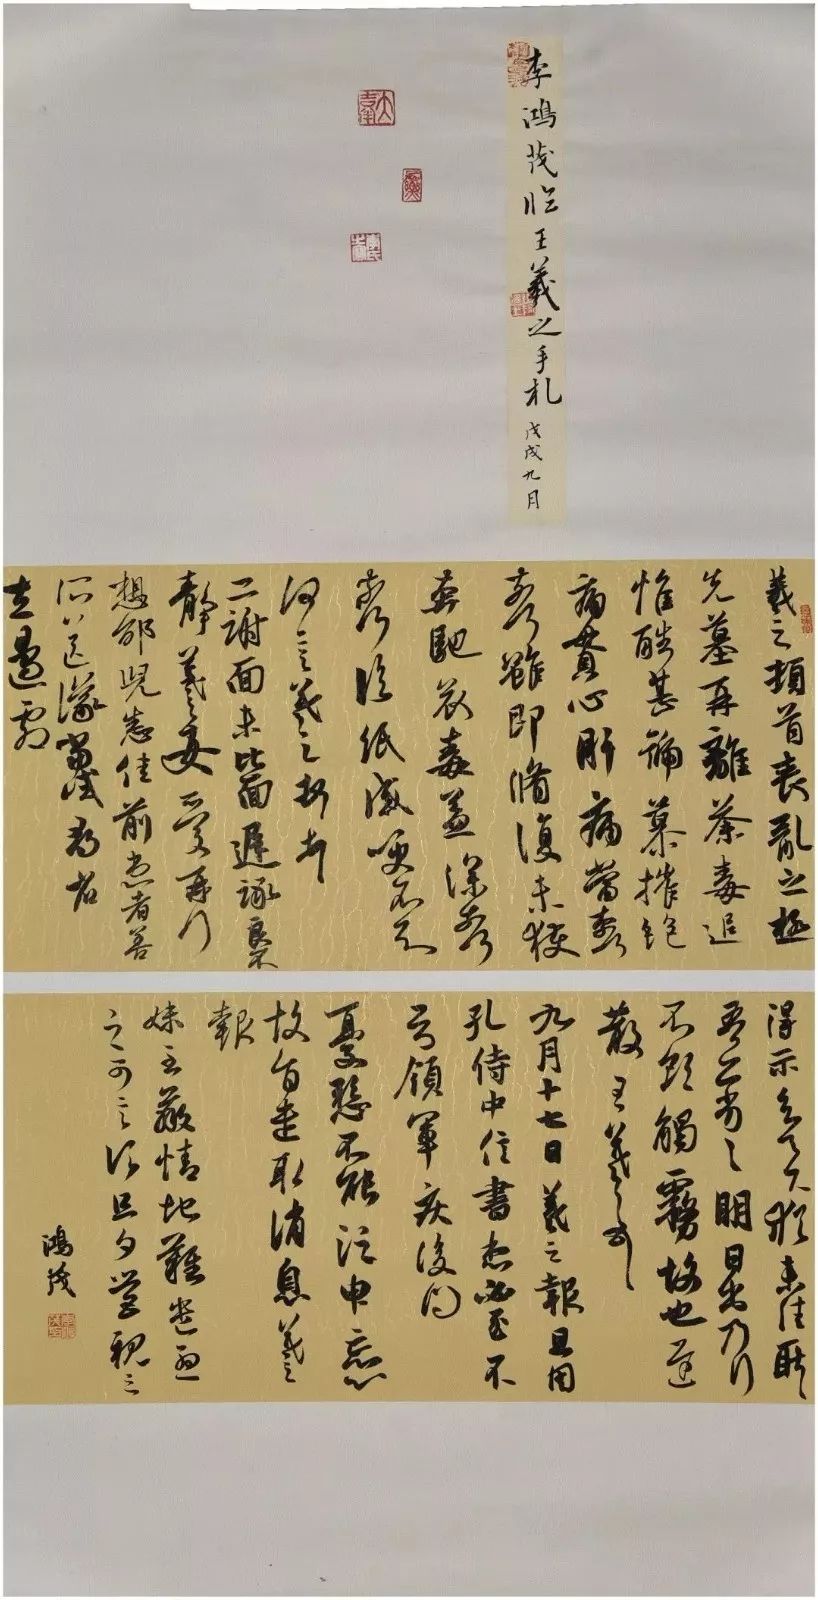 李鴻茂臨王羲之手札
戊戌九月
羲之頓首喪亂之極
先墓再離荼毒追
惟酷甚號慕摧絕
痛貫心肝痛當奈何
奈何雖即脩復未獲
奔馳哀毒益深奈何
奈何臨紙感哽不知
何言羲之頓首
二謝面未比面遲詠良不
靜羲之女愛再拜
想邵兒悉佳前患者善
所送議當試尋省
左邊劇
得示知足下猶未佳耿耿
吾亦劣劣明日出乃行
不欲觸霧故也遲
散王羲之頓首
九月十七日羲之報且因
孔侍中信書想必至不
知領軍疾後問
憂懸不能須臾忘心
故旨遣取消息羲之
報
妹至羸情地難遣憂
之可言須旦夕營視之
鴻茂